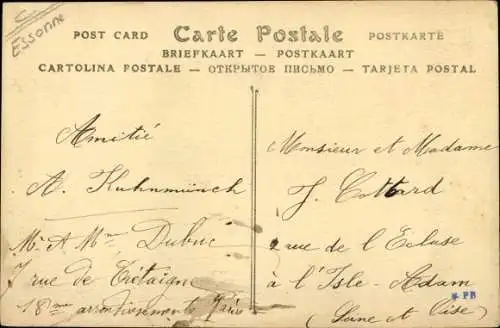 Essonne
POST CARD Carte Postale POSTKARTE
BRIEFKAART — POSTKAART
CARTOLINA POSTALE — ОТКРЫТОЕ ПИСЬМО — TARJETA POSTAL
Amitié
A. Kuhnmünch
Mr A Mme Dubuc
7 rue de Trétaigne
18me arrondissement Paris
Monsieur et Madame
J. Cottard
rue de l'Ecluse
à l'Isle-Adam
(Seine et Oise)
PB